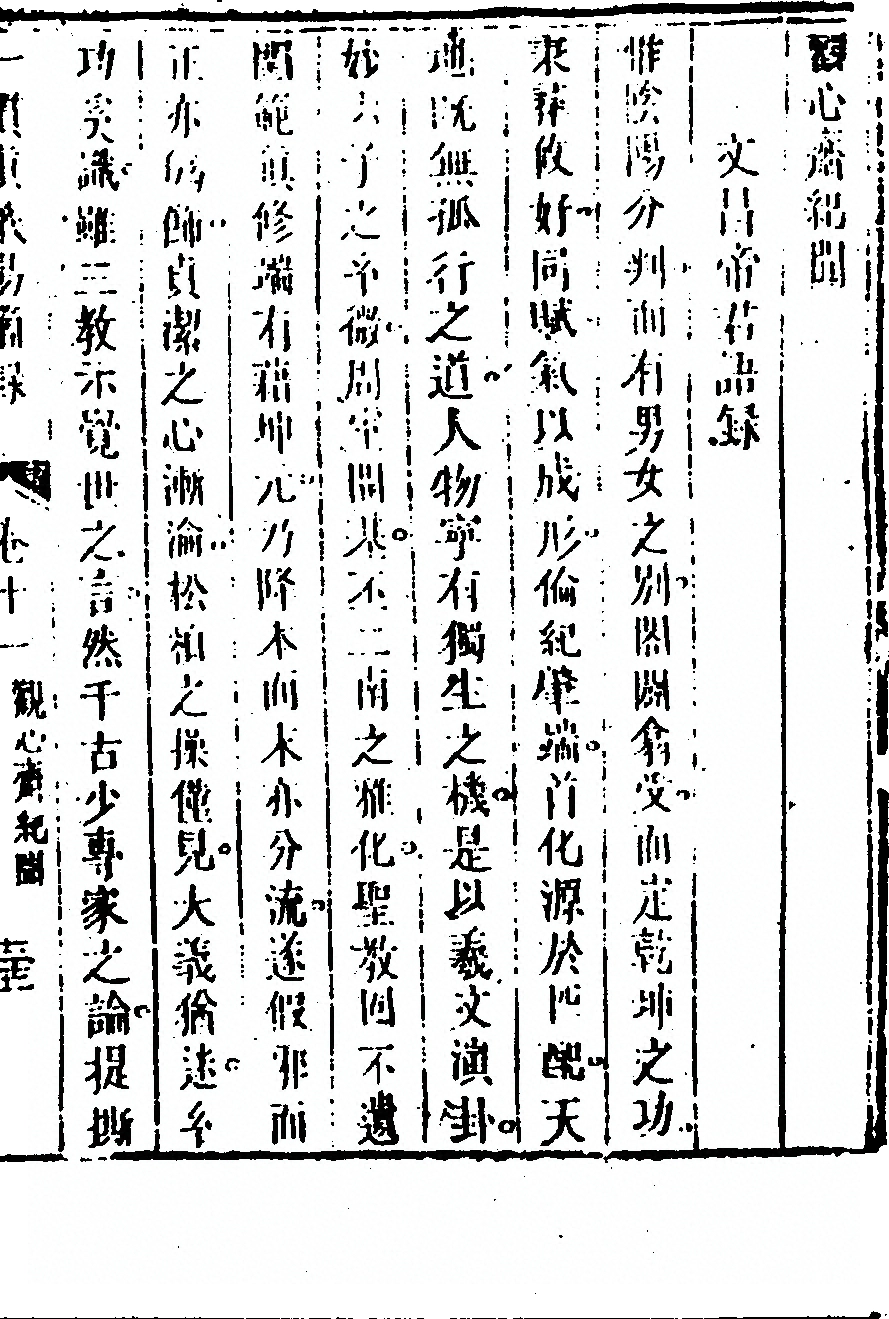 觀心齋紀聞
文昌帝君語錄
惟陰陽分判而有男女之別闔闢翕受而定乾坤之功
秉彝攸好同賦氣以成形倫紀肇端首化源於匹配天
地既無孤行之道人物寧有獨生之機是以羲文演卦
妙六子之糸微周室開基丕二南之雅化聖教罔不遺
閫範眞修端有藉坤元乃降本而末亦分流遂假邪而
正亦僞飾貞潔之心漸淪松柏之操僅見大義猶迷糸
功奚識雖三教示覺世之言然千古少專家之論提撕
卷十一
觀心齋紀聞